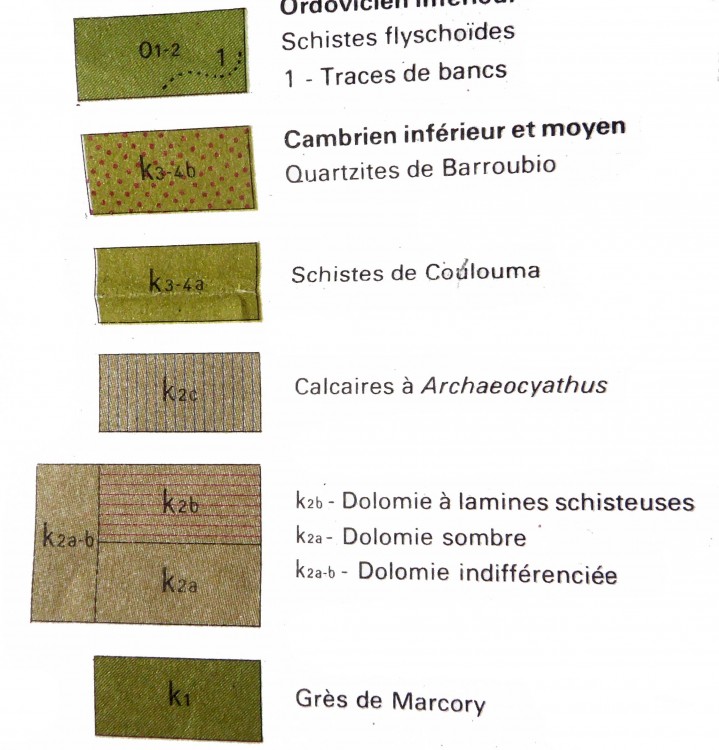 Ordovicien inférieur
O1-2 1 Schistes flyschoïdes
1 - Traces de bancs
Cambrien inférieur et moyen
k3-4b Quartzites de Barroubio
k3-4a Schistes de Coulouma
k2c Calcaires à Archaeocyathus
k2b k2b - Dolomie à lamines schisteuses
k2a-b k2a - Dolomie sombre
k2a k2a-b - Dolomie indifférenciée
k1 Grès de Marcory